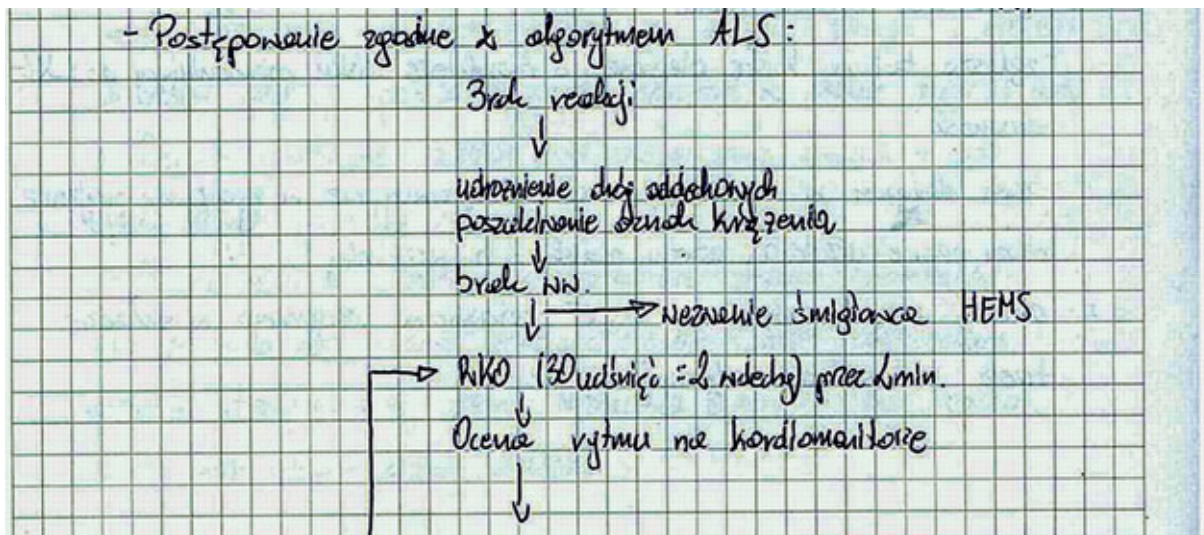 - Postępowanie zgodne z algorytmem ALS:
Brak reakcji
udrożnienie dróg oddechowych
poszukiwanie oznak krążenia
brak ww.
wezwanie śmigłowca HEMS
RKO (30 uciśnięć : 2 wdechy) przez 2 min.
Ocena rytmu na kardiomonitorze